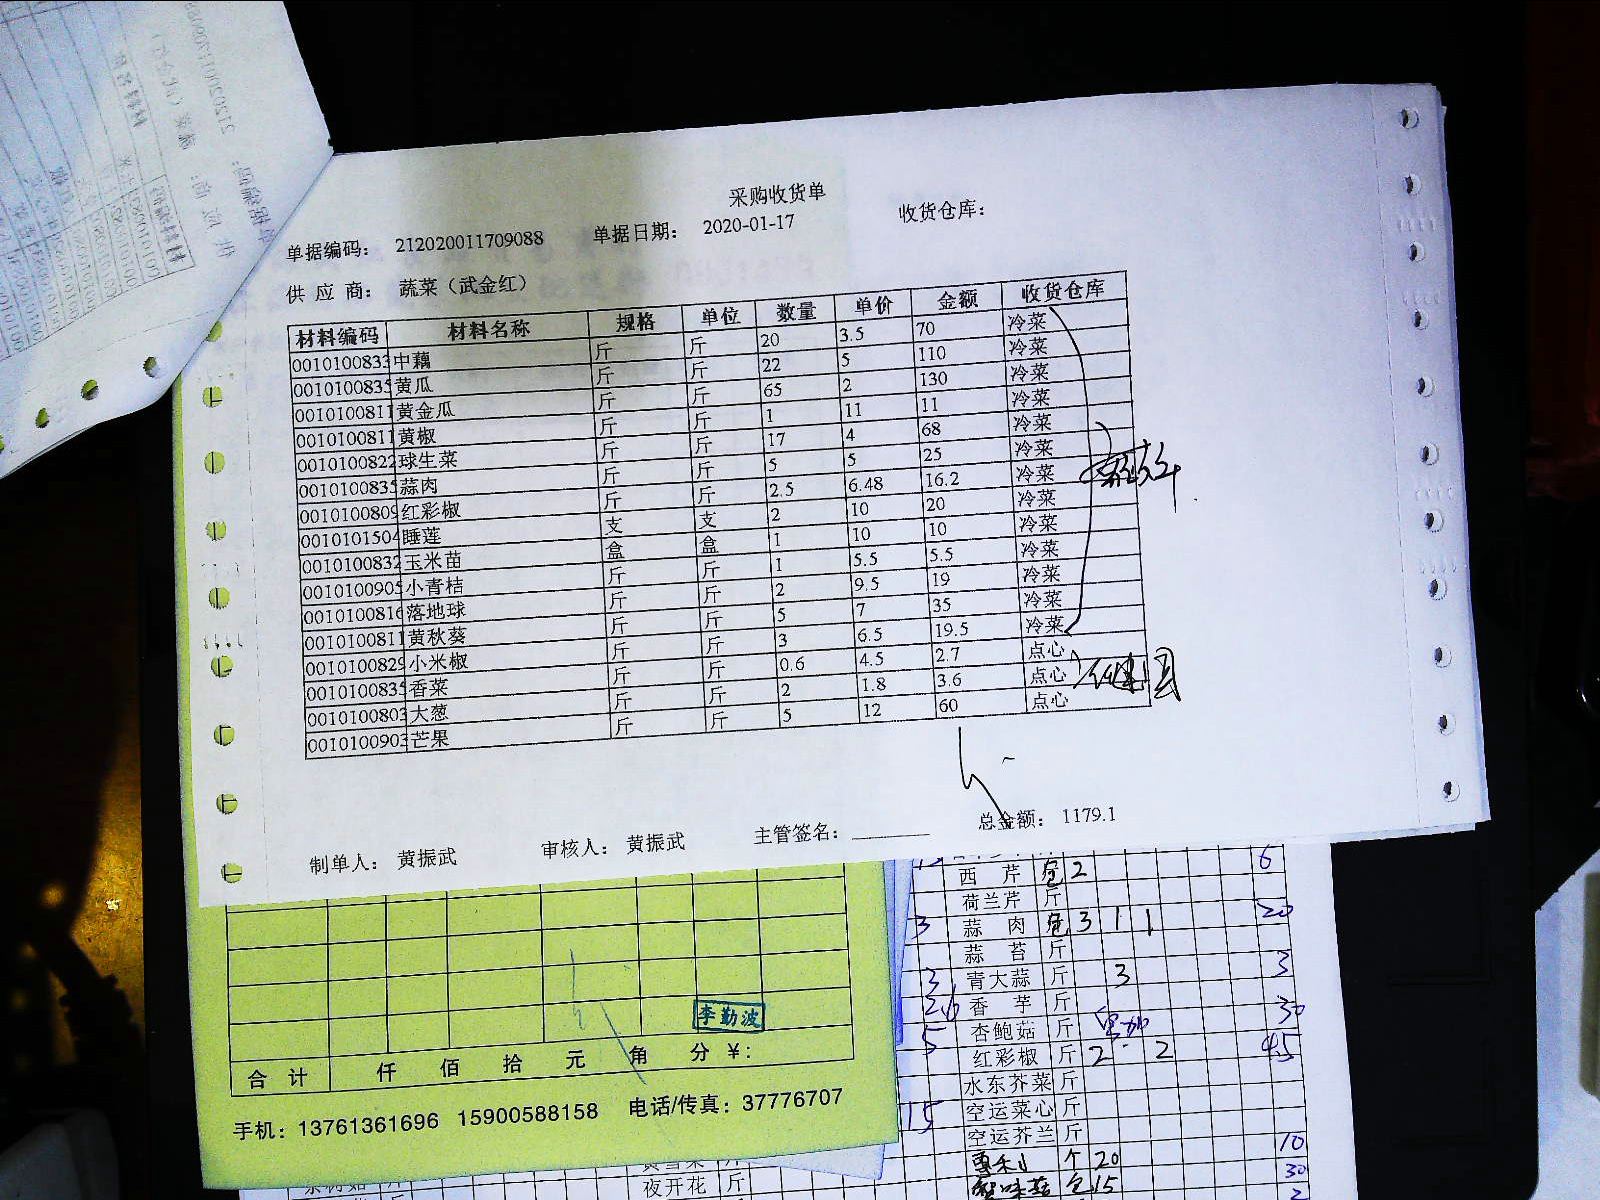 采购收货单
单据编码: 212020011709088 单据日期: 2020-01-17 收货仓库:
供 应 商: 蔬菜（武金红）
材料编码 材料名称 规格 单位 数量 单价 金额 收货仓库
0010100833 中藕 斤 斤 20 3.5 70 冷菜
0010100835 黄瓜 斤 斤 22 5 110 冷菜
0010100811 黄金瓜 斤 斤 65 2 130 冷菜
0010100811 黄椒 斤 斤 1 11 11 冷菜
0010100822 球生菜 斤 斤 17 4 68 冷菜
0010100835 蒜肉 斤 斤 5 5 25 冷菜
0010100809 红彩椒 斤 斤 2.5 6.48 16.2 冷菜
0010101504 睡莲 支 支 2 10 20 冷菜
0010100832 玉米苗 盒 盒 1 10 10 冷菜
0010100905 小青桔 斤 斤 1 5.5 5.5 冷菜
0010100816 落地球 斤 斤 2 9.5 19 冷菜
0010100811 黄秋葵 斤 斤 5 7 35 冷菜
0010100829 小米椒 斤 斤 3 6.5 19.5 冷菜
0010100835 香菜 斤 斤 0.6 4.5 2.7 点心
0010100803 大葱 斤 斤 2 1.8 3.6 点心
0010100903 芒果 斤 斤 5 12 60 点心
制单人: 黄振武 审核人: 黄振武 主管签名: 总金额: 1179.1
李勤波
合计 仟 佰 拾 元 角 分 ¥:
手机: 13761361696 15900588158 电话/传真: 37776707
西芹 包 2 6
荷兰芹 斤
3 蒜肉 包 3 1 1 20
蒜苔 斤
3 青大蒜 斤 3 3
香芋 斤 30
5 杏鲍菇 斤
红彩椒 斤 2 2 45
水东芥菜 斤
15 空运菜心 斤
空运芥兰 斤 10
个 20 30
夜开花 斤 包 15 2